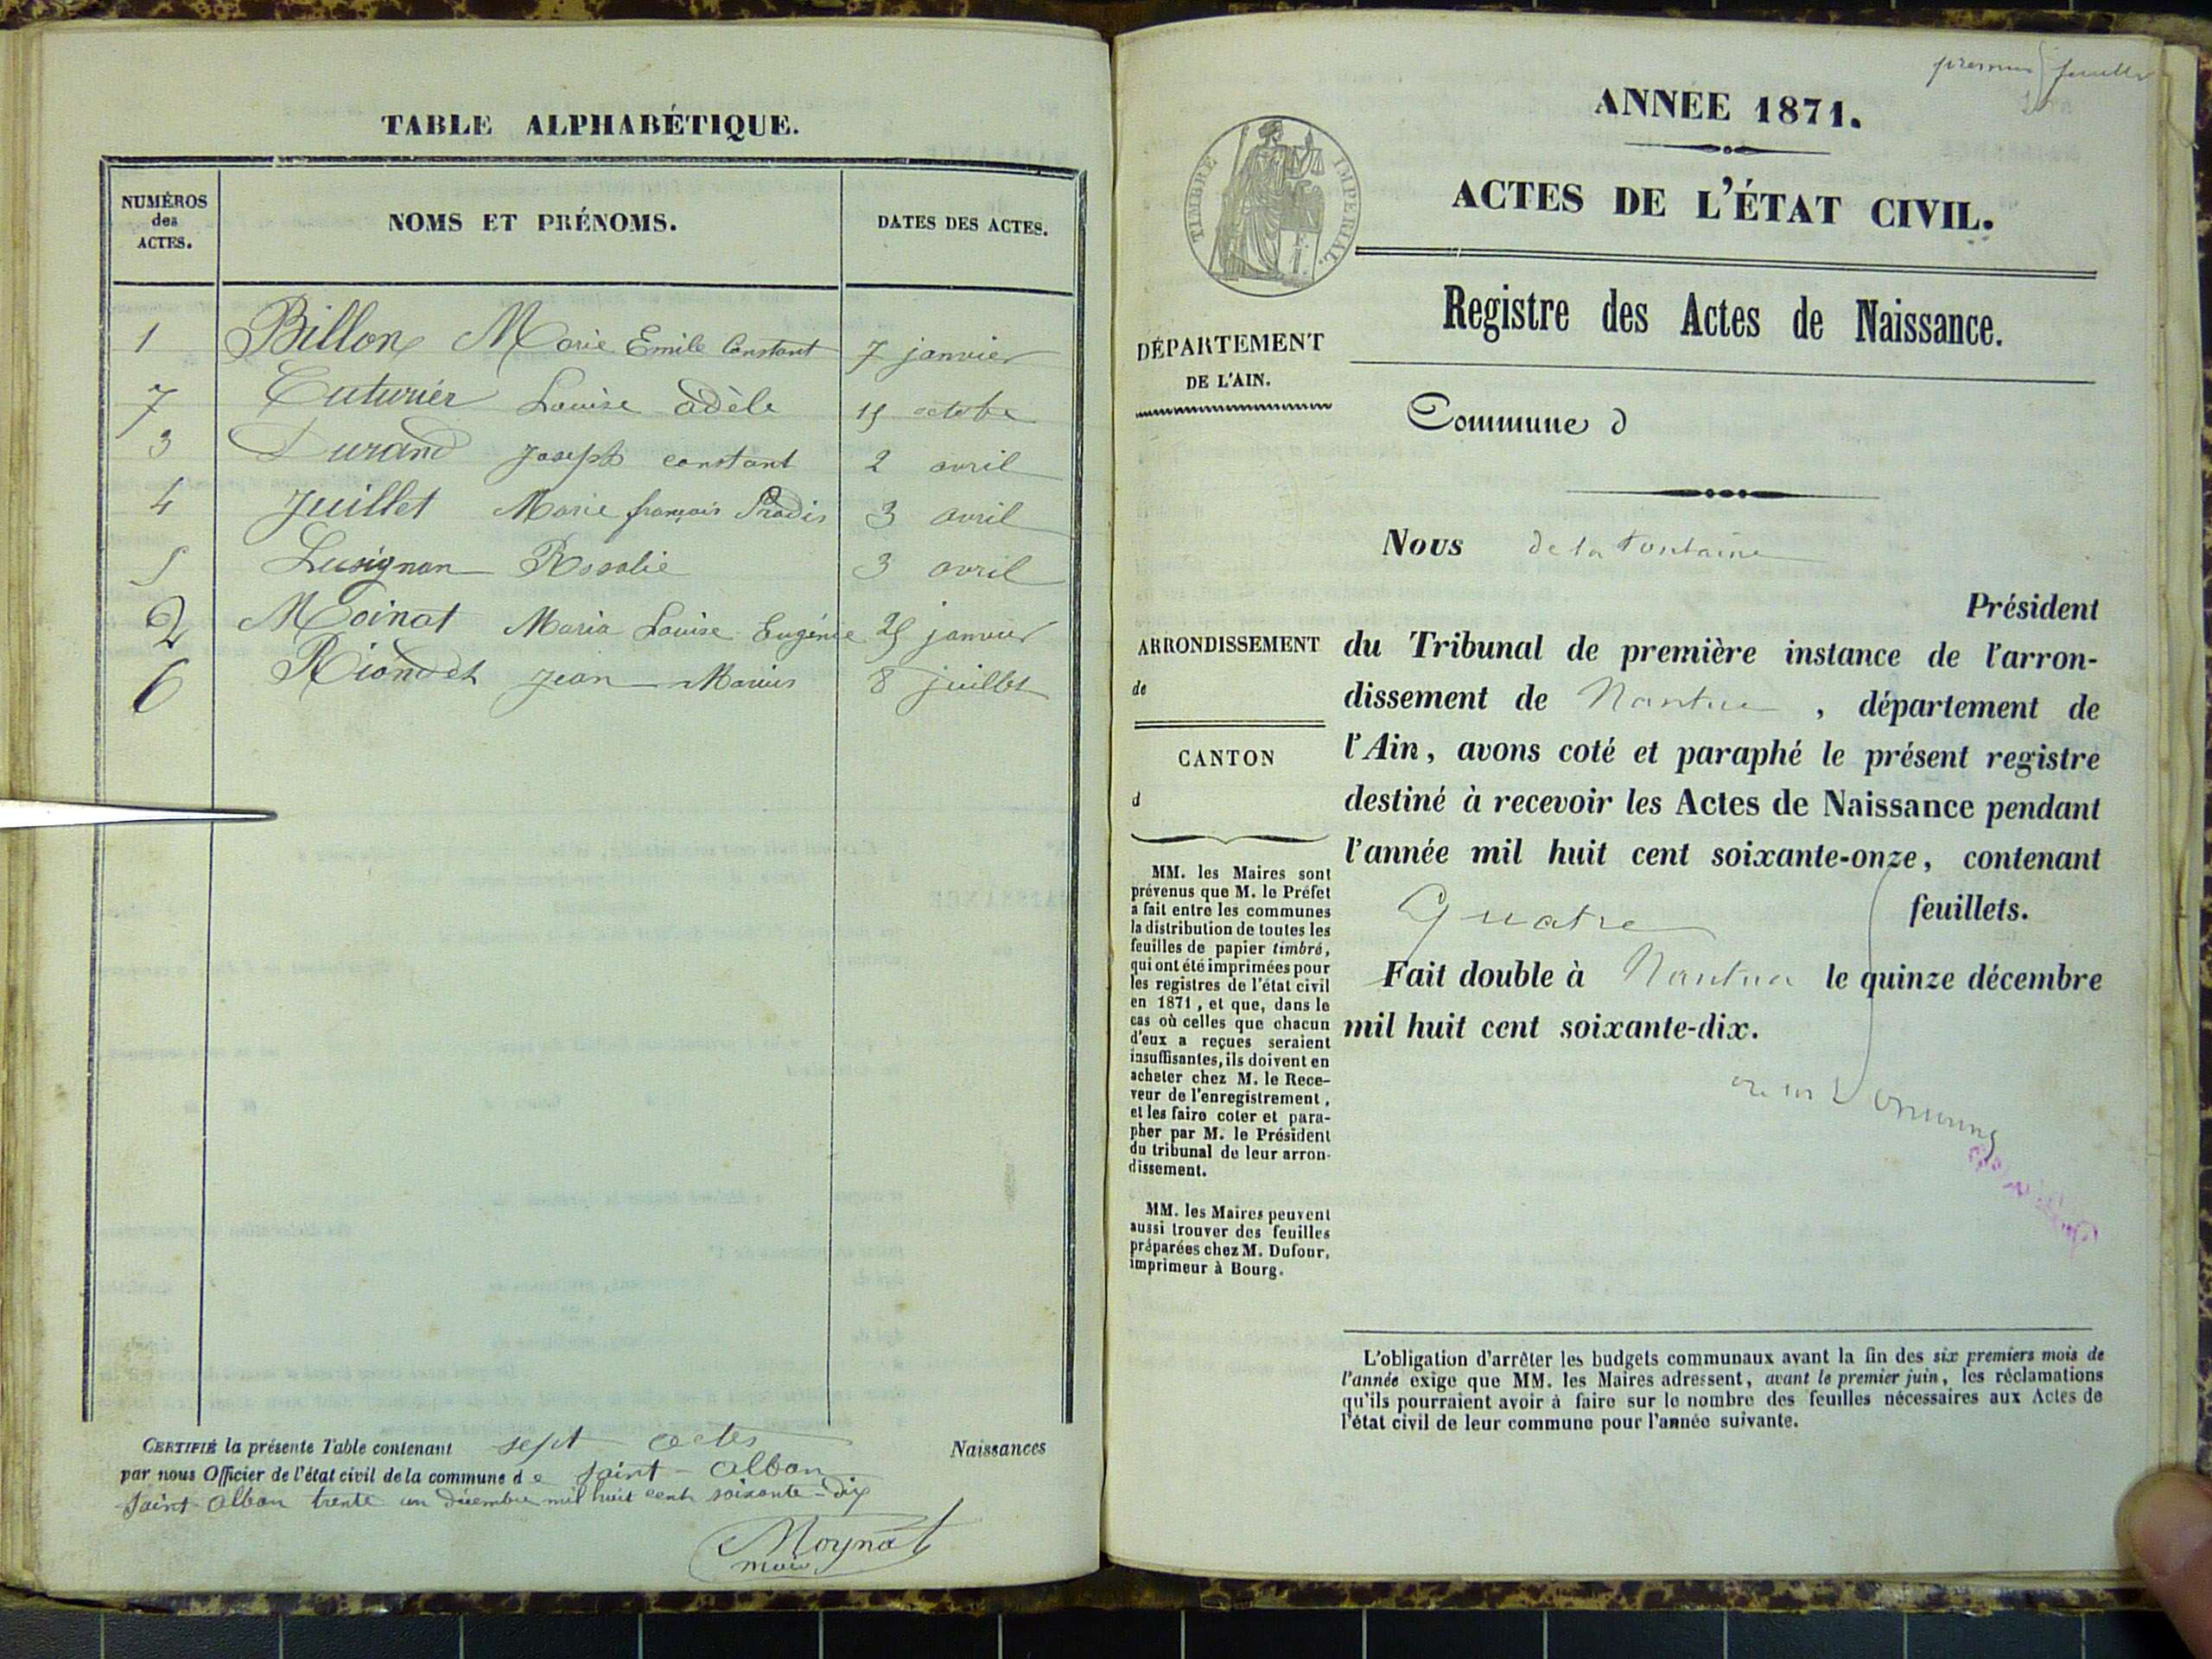 TABLE ALPHABÉTIQUE.
NUMÉROS des ACTES.
NOMS ET PRÉNOMS.
DATES DES ACTES.
1 Billon Marie Emile Constant 7 janvier
7 Cuturier Louise adèle 15 octobre
3 Durand Joseph constant 2 avril
4 Juillet Marie françois 3 avril
5 Lusignan Rosalie 3 avril
2 Moinat Maria Louise Eugénie 25 janvier
6 Riondet Jean Marius 8 juillet
CERTIFIÉ la présente Table contenant sept actes Naissances
par nous Officier de l'état civil de la commune de Saint-Alban
Saint-Alban trente un décembre mil huit cent soixante-dix
Moynat
maire
premier feuillet
ANNÉE 1871.
ACTES DE L'ÉTAT CIVIL.
TIMBRE IMPERIAL.
Registre des Actes de Naissance.
DÉPARTEMENT
DE L'AIN.
Commune d
Nous de la Fontaine
Président
du Tribunal de première instance de l'arron-
dissement de Nantua, département de
l'Ain, avons coté et paraphé le présent registre
destiné à recevoir les Actes de Naissance pendant
l'année mil huit cent soixante-onze, contenant
Quatre feuillets.
Fait double à Nantua le quinze décembre
mil huit cent soixante-dix.
ARRONDISSEMENT
de
CANTON
d
MM. les Maires sont
prévenus que M. le Préfet
a fait entre les communes
la distribution de toutes les
feuilles de papier timbré,
qui ont été imprimées pour
les registres de l'état civil
en 1871, et que, dans le
cas où celles que chacun
d'eux a reçues seraient
insuffisantes, ils doivent en
acheter chez M. le Rece-
veur de l'enregistrement,
et les faire coter et para-
pher par M. le Président
du tribunal de leur arron-
dissement.
MM. les Maires peuvent
aussi trouver des feuilles
préparées chez M. Dufour,
imprimeur à Bourg.
L'obligation d'arrêter les budgets communaux avant la fin des six premiers mois de
l'année exige que MM. les Maires adressent, avant le premier juin, les réclamations
qu'ils pourraient avoir à faire sur le nombre des feuilles nécessaires aux Actes de
l'état civil de leur commune pour l'année suivante.